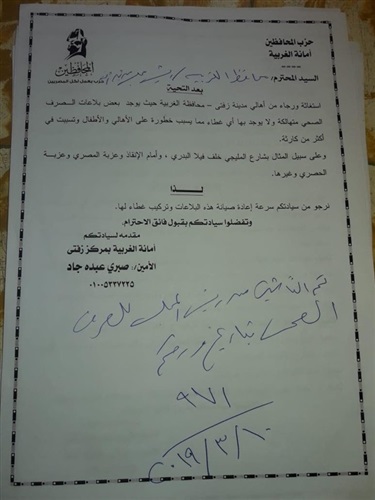 حزب المحافظين
أمانة الغربية
المحافظين
السيد المحترم/ محافظ الغربية
بعد التحية
استغاثة ورجاء من أهالي مدينة زفتى – محافظة الغربية حيث يوجد بعض بلاعات الصرف
الصحي متهالكة ولا يوجد بها أي غطاء مما يسبب خطورة على الأهالي والأطفال وتسببت في
أكثر من كارثة.
وعلى سبيل المثال بشارع المليجي خلف فيلا البدري ، وأمام الإنقاذ وعزبة المصري وعزبة
الحصري وغيرها.
لــذا
نرجو من سيادتكم سرعة إعادة صيانة هذه البلاعات وتركيب غطاء لها.
وتفضلوا سيادتكم بقبول فائق الاحترام.
مقدمه لسيادتكم
أمانة الغربية بمركز زفتى
الأمين/ صبري عبده جاد
٠١٠٠٥٣٢٧٢٢٥
تم التأشيرة من رئيس المجلس للصرف
الصحى بتاريخ ورقم
٩٧١
٢٠١٩/٣/١٠